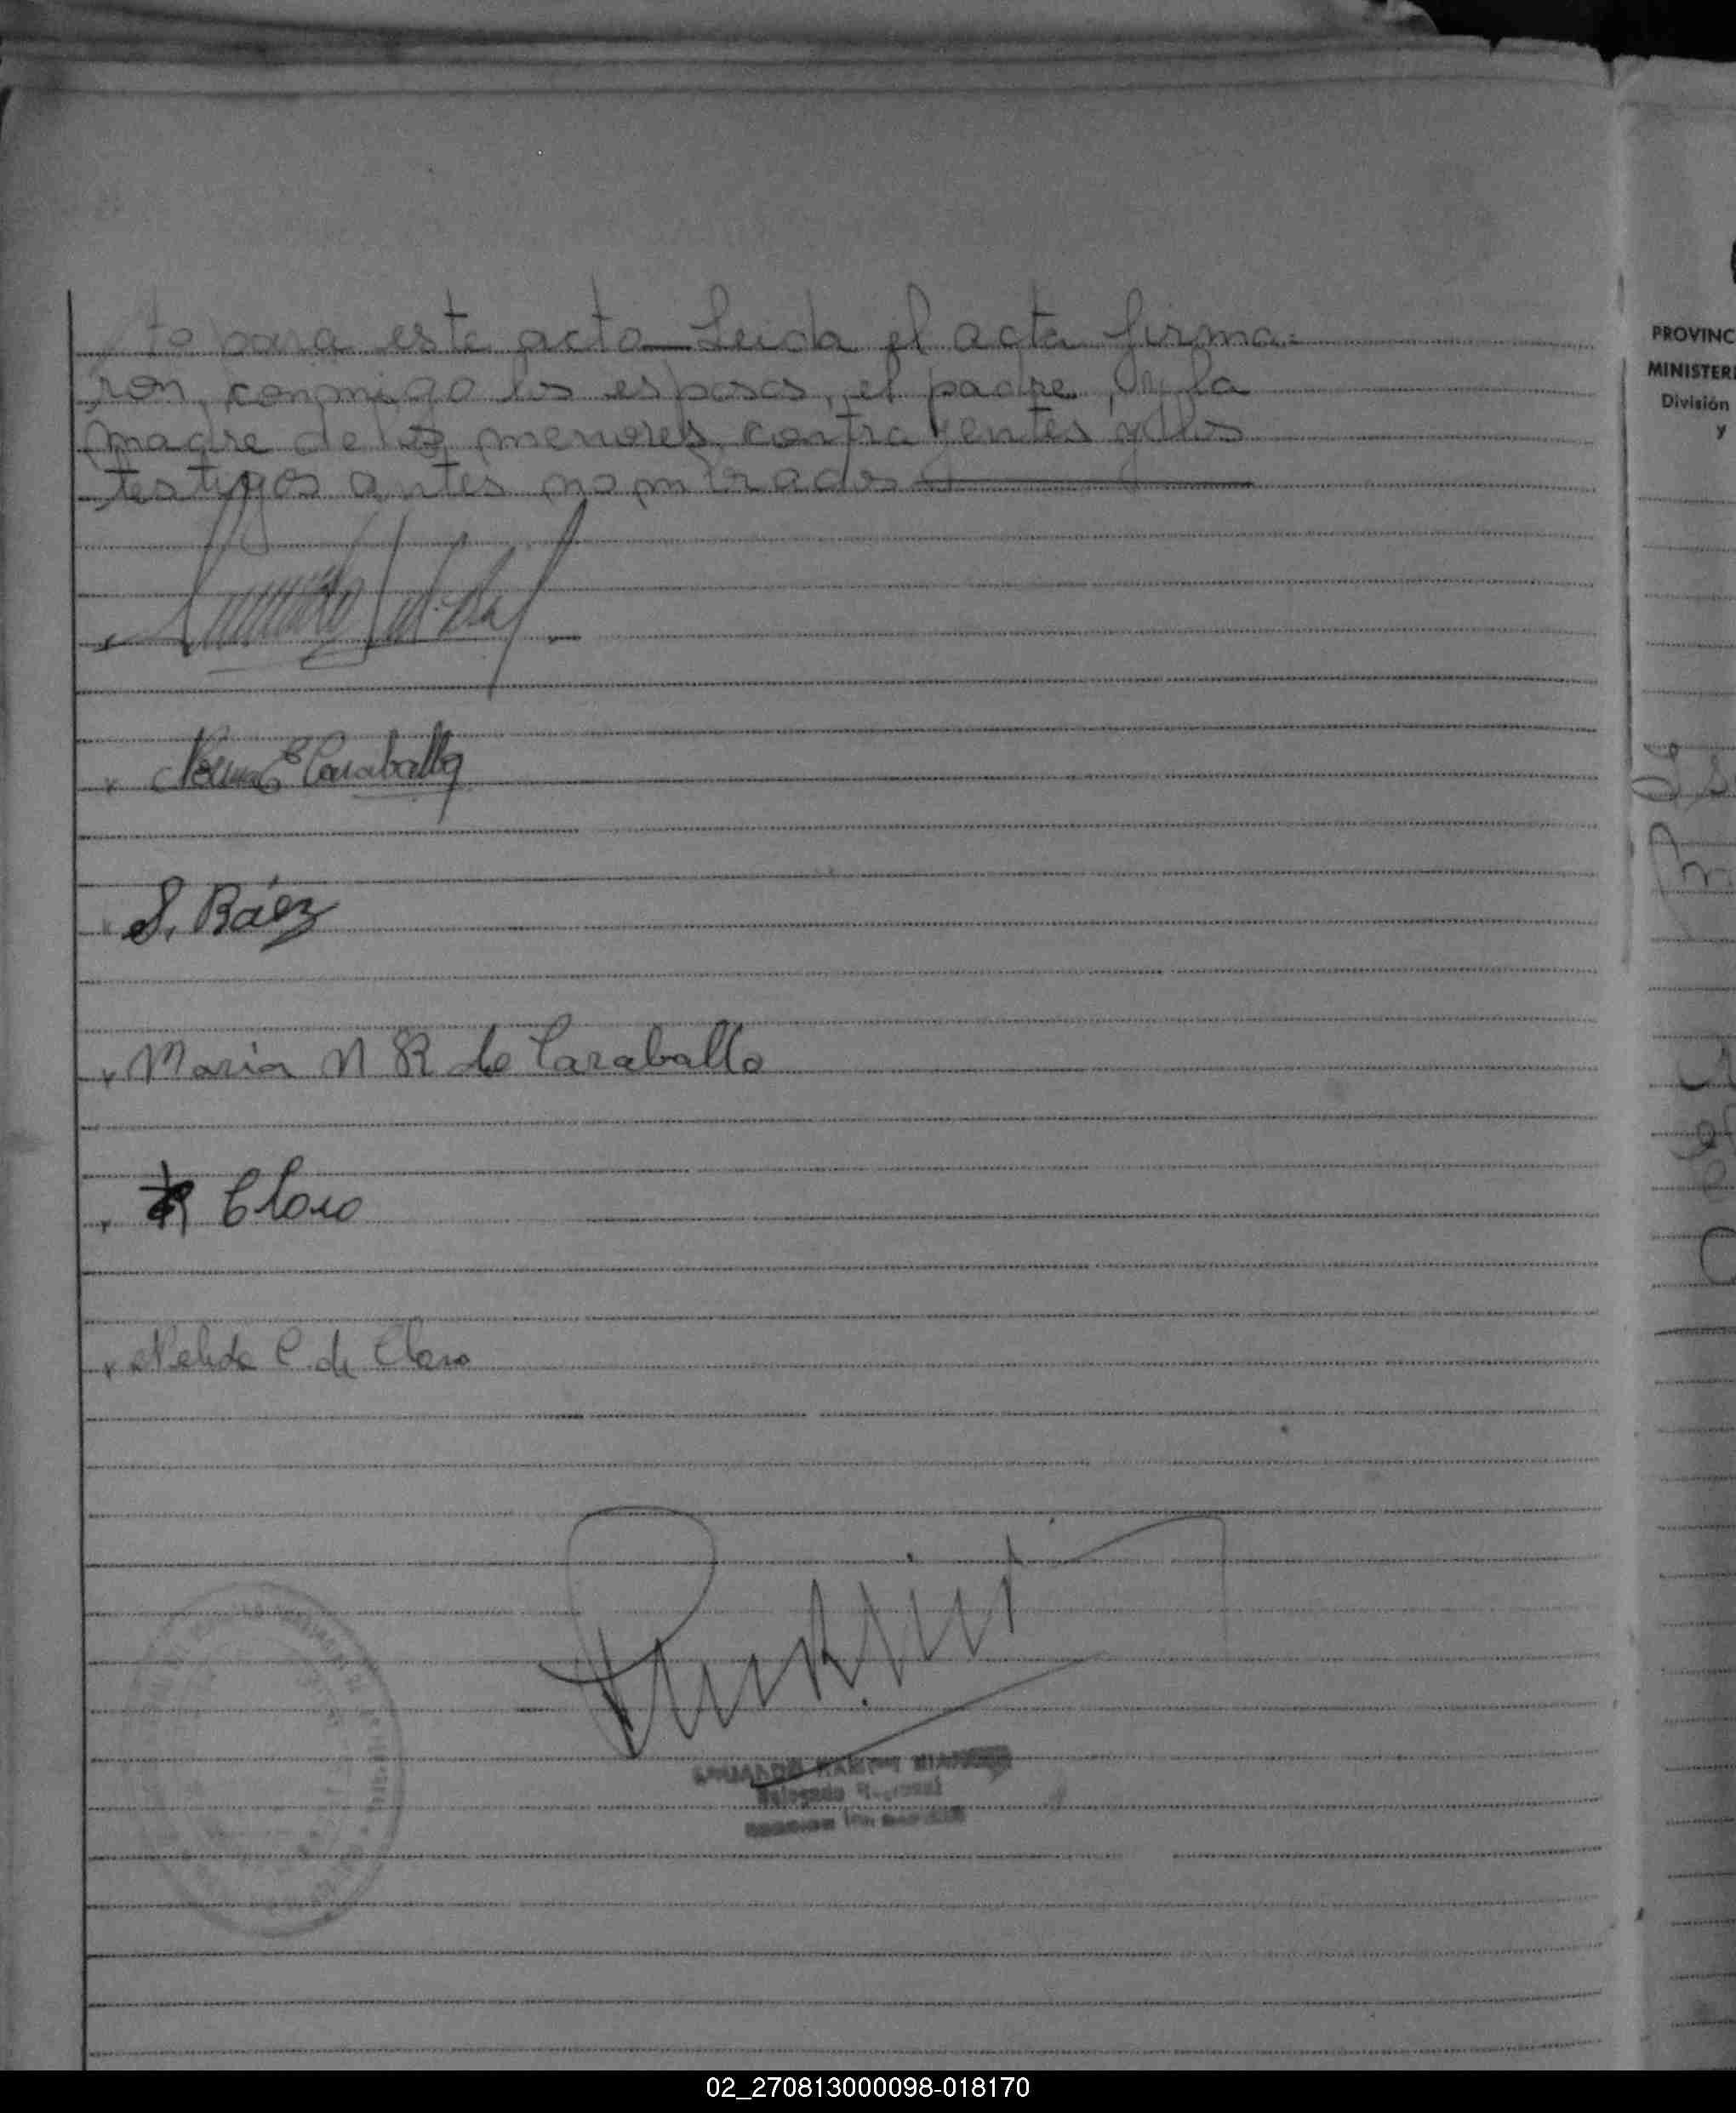 to para este acto — Leida el acta firma-
ron, conmigo los esposos, el padre y la
madre de los menores contrayentes y los
testigos antes nombrados
Norma E Caraballo
S. Báez
Maria N R de Caraballo
R Claro
Nelida C. de Claro
Delegado Regional
PROVINC
MINISTER
División
y
02_270813000098-018170